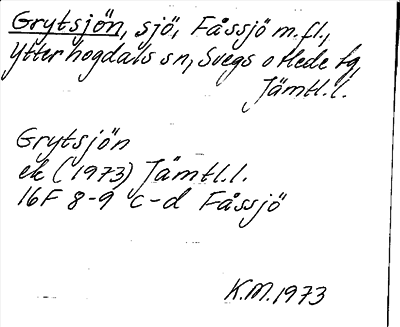 Grytsjön, sjö, Fåssjö m.fl.,
Ytterhogdals sn, Svegs o Hede tg,
Jämtl.l.
Grytsjön
ek (1973) Jämtl.l.
16F 8-9 c-d Fåssjö
K.M. 1973